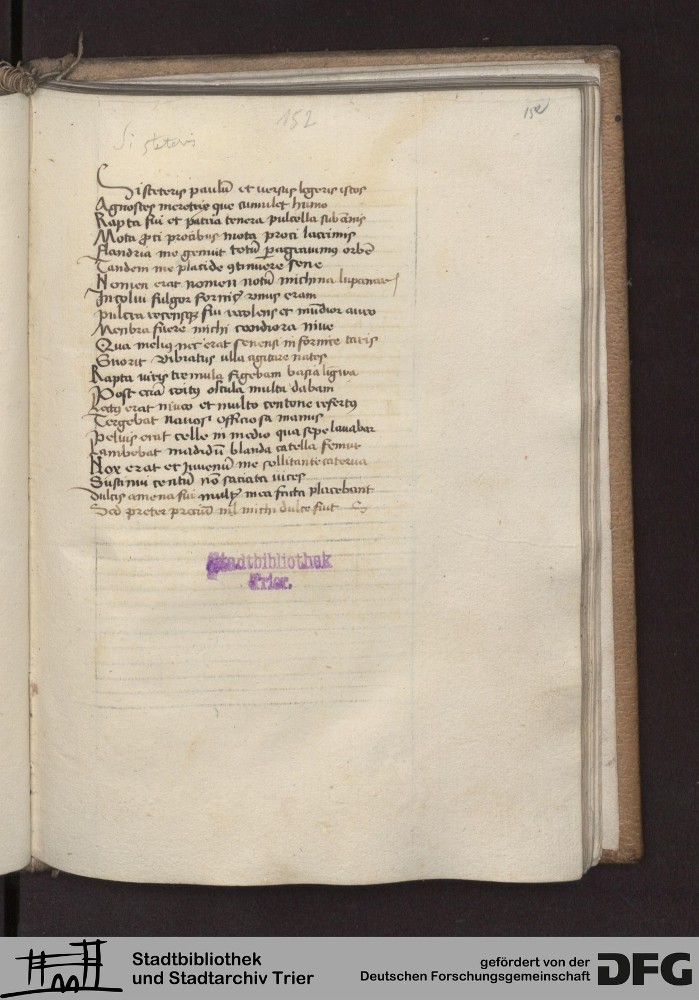 152
152
Si steteris
Si steteris paulū et versus legeris istos
Agnosces meretrix que cumulet humo
Rapta fui et patria tenera pulcella sub ānis
Mota ꝓci precibus mota proci lacrimis
Flandria me genuit totū pagravimus orbē
Tandem me placide ꝯtinuere sene
Nomen erat nomen notū michi na lupanar
Incolui fulgor fornicꝭ unus eram
Pulcra recensqꝫ fui redolens et mūdior auro
Menbra fuere michi candiora nive
Qua melius nec erat senensi in fornice tais
Gnorit vibratus ulla agitare nates
Rapta viris tremula figebam basia ligwa
Post eciā coitus oscula multa dabam
Lectus erat niveo et multo centone refertus
Tergebat nervos officiosa manus
Pelvis erat celle in medio qua sepe lavabar
Lambebat madidū blanda catella femur
Nox erat et Juvenū me sollitante caterva
Sustinui centū nō saciata vices
Dulcis amena fui multꝭ mea facta placebant
Sed preter preciū nil michi dulce fuit
Stadtbibliothek
Trier.
Stadtbibliothek
und Stadtarchiv Trier
gefördert von der
Deutschen Forschungsgemeinschaft
DFG